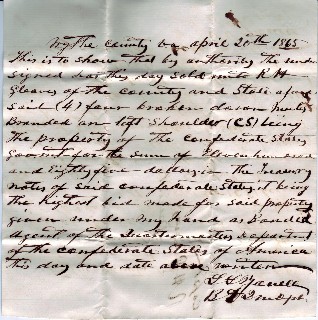 Wythe county va april 20th 1865
This is to show that by authority the under
signed has this day sold unto R H
Gleaves of the county and State afore
said (4) four broken down mules
Branded on left Shoulder (CS) being
the property of The confederate States
Goverment for the sum of Eleven hundred
and Eighty five dollars in the Treasury
notes of said confederate States it being
the highest bid made for said property
given under my hand as Bonded
Agent of the Quartermasters Department
of the confederate States of America
this day and date above writen